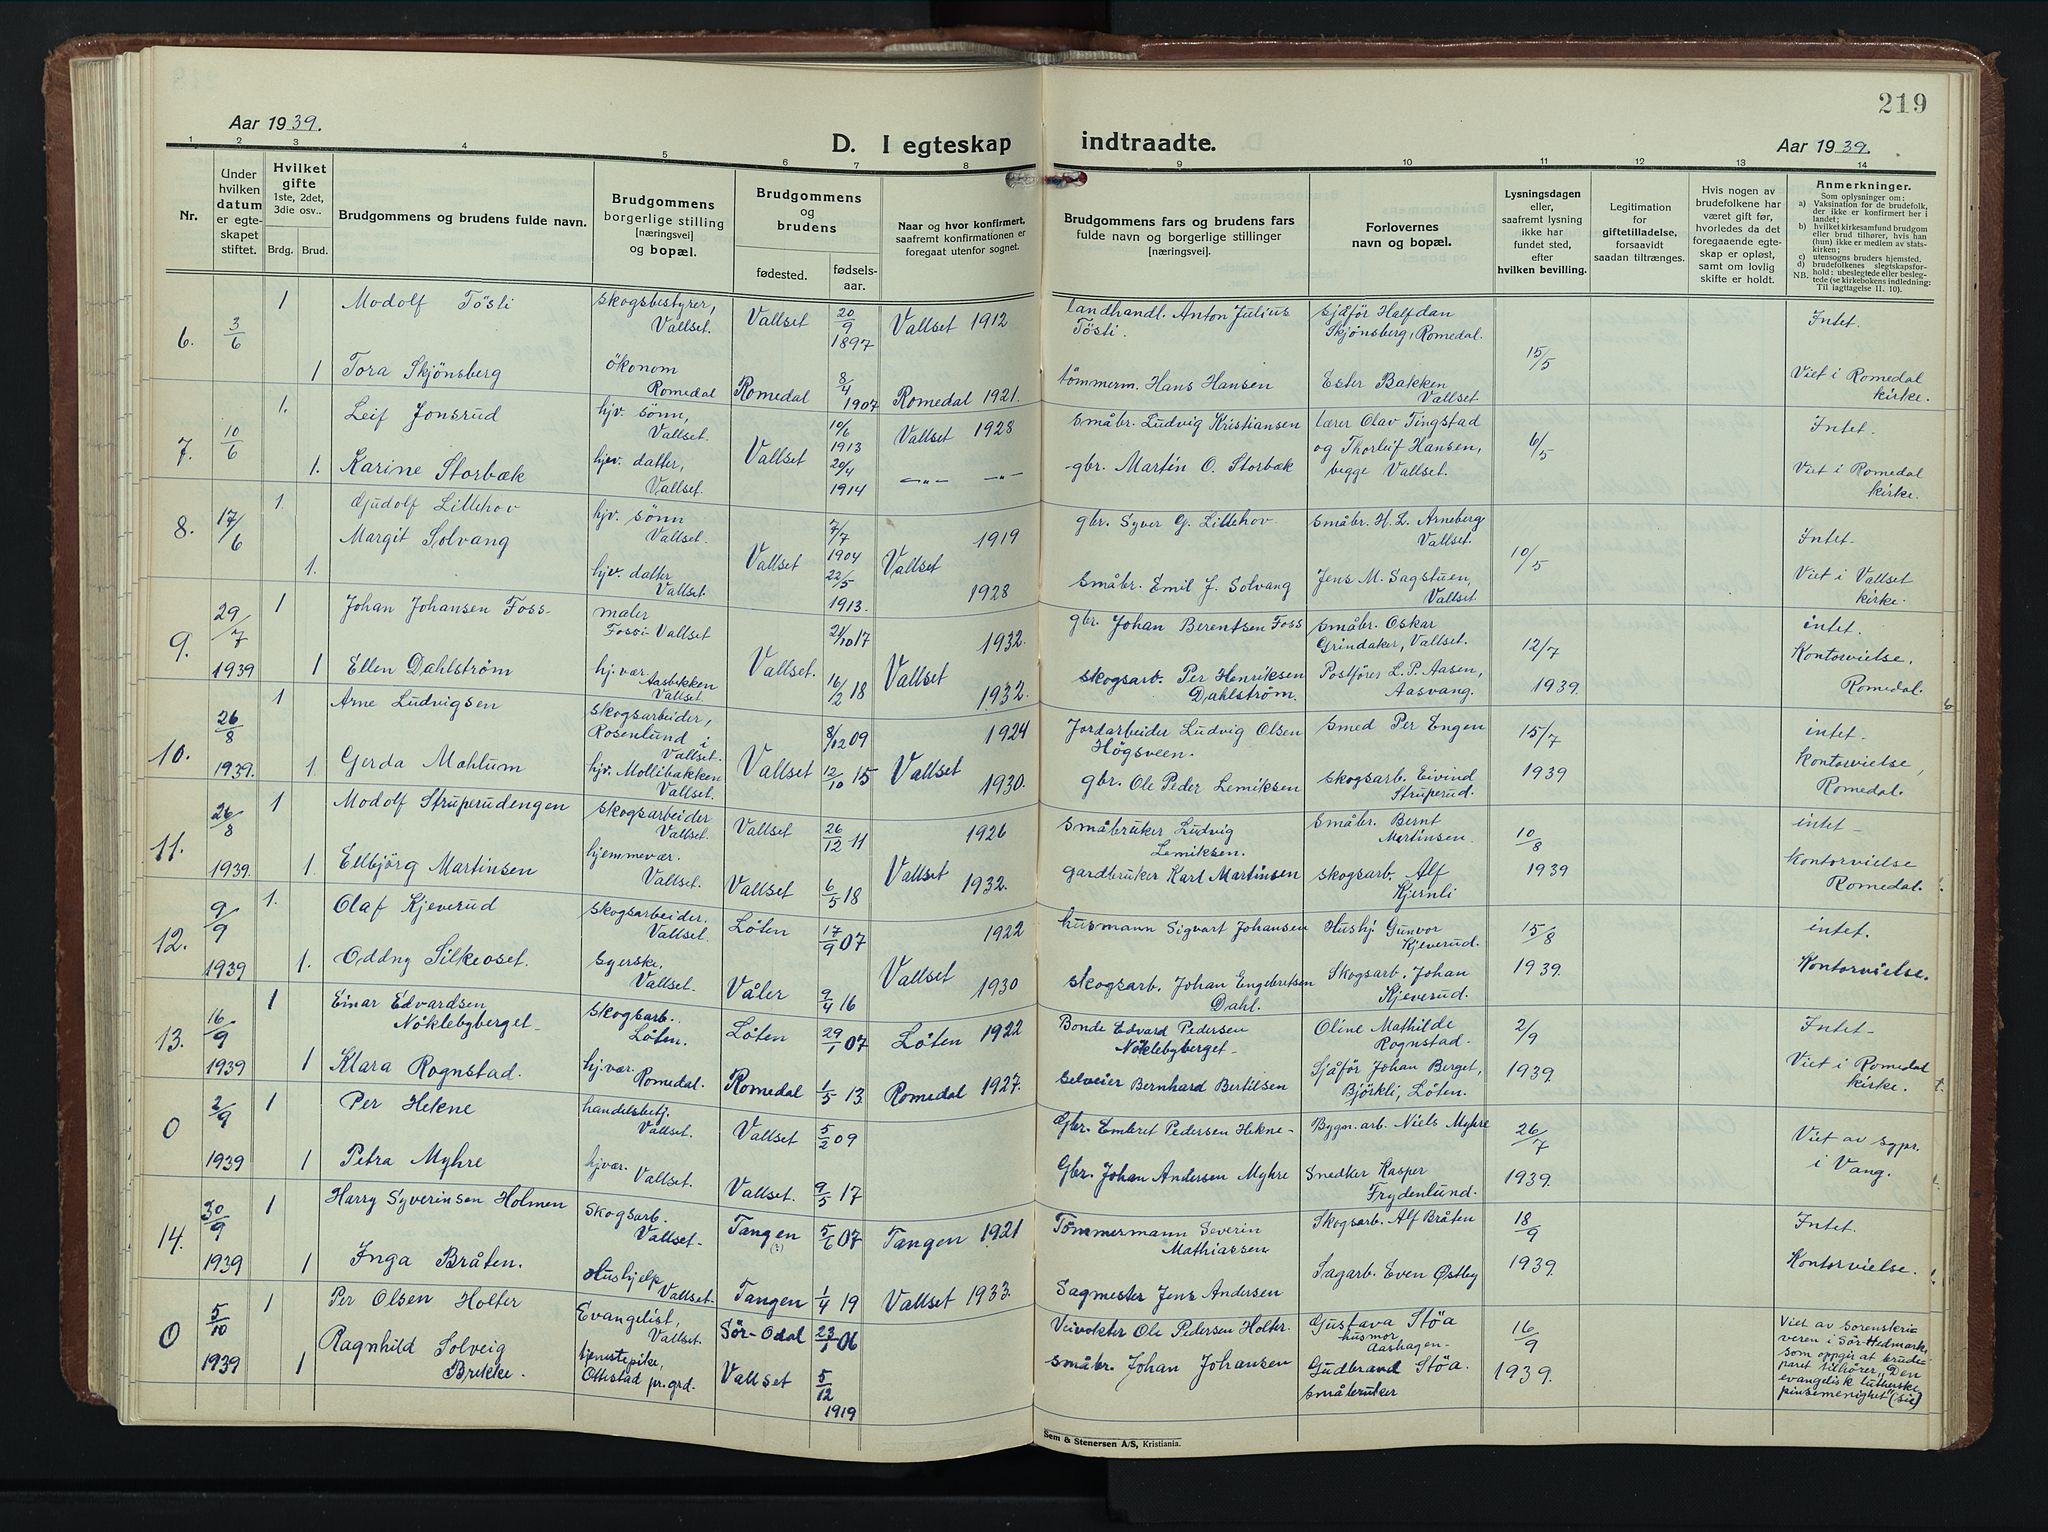 219
Aar 1939.
D. I egteskap indtraadte.
Aar 1939.
1 2 3 4 5 6 7 8 9 10 11 12 13 14
Nr.
Under hvilken datum er egteskapet stiftet.
Hvilket gifte 1ste, 2det, 3die osv..
Brdg. Brud.
Brudgommens og brudens fulde navn.
Brudgommens borgerlige stilling [næringsvei] og bopæl.
Brudgommens og brudens
fødested. fødselsaar.
Naar og hvor konfirmert, saafremt konfirmationen er foregaat utenfor sognet.
Brudgommens fars og brudens fars fulde navn og borgerlige stillinger [næringsvei].
Forlovernes navn og bopæl.
Lysningsdagen eller, saafremt lysning ikke har fundet sted, efter hvilken bevilling.
Legitimation for giftetilladelse, forsaavidt saadan tiltrænges.
Hvis nogen av brudefolkene har været gift før, hvorledes da det foregaaende egteskap er opløst, samt om lovlig skifte er holdt.
Anmerkninger.
Som oplysninger om:
a) Vaksination for de brudefolk, der ikke er konfirmert her i landet;
b) hvilket kirkesamfund brudgom eller brud tilhører, hvis han (hun) ikke er medlem av statskirken;
c) utensogns bruders hjemsted.
d) brudefolkenes slegtskapsforhold: ubeslegtede eller beslegtede (se kirkebokens indledning:
NB. Til iagttagelse II. 10).
6. 3/6 1 Modolf Tösli skogsbestyrer, Vallset. Vallset 20/9 1897 Vallset 1912 landhandl. Anton Julius Tösli. sjåför Halfdan Skjönsberg, Romedal. 15/5 Intet.
1 Tora Skjönsberg ökonom Romedal Romedal 8/4 1907 Romedal 1921. tömmerm. Hans Hansen Ester Bakken Vallset Viet i Romedal kirke.
7. 10/6 1. Leif Jonsrud hjv. sönn, Vallset. Vallset 10/6 1913 Vallset 1928 småbr. Ludvig Kristiansen lærer Olav Tingstad og Thorleif Hansen, begge Vallset. 6/5 Intet.
1. Karine Storbæk hjv. datter, Vallset. 20/4 1914 —„— —„— gbr. Martin O. Storbæk Viet i Romedal kirke.
8. 17/6 1. Gjudolf Lillehov hjv. sönn Vallset. Vallset 7/7 1904 Vallset 1919 gbr. Syver G. Lillehov. småbr. H. L. Arneberg Vallset. 10/5 Intet.
1. Margit Solvang hjv. datter Vallset. 22/5 1913. 1928 småbr. Emil J. Solvang Jens M. Sagstuen, Vallset Viet i Vallset kirke.
9. 29/7 1939 1 Johan Johansen Foss maler Fossi Vallset Vallset. 21/10 17 Vallset 1932. gbr. Johan Berentsen Foss småbr. Oskar Grindaker, Vallset. 12/7 1939. intet.
1 Ellen Dahlström hj.vær Aasbekken Vallset. 16/2 18 1932. skogsarb. Per Henriksen Dahlström. Postförer L. P. Aasen, Aasvang. Kontorvielse. Romedal.
10. 26/8 1939. 1 Arne Ludvigsen skogsarbeider, Rosenlund i Vallset. Vallset 8/12 09 Vallset 1924 Jordarbeider Ludvig Olsen Högsveen. Smed Per Engen 15/7 1939 intet.
1 Gerda Mahlum hjv. Mollibakken Vallset. 12/10 15 1930. gbr. Ole Peder Lemiksen skogsarb. Eivind Struperud. Kontorvielse, Romedal.
11. 26/8 1939. 1 Modolf Struperudengen skogsarbeider Vallset. Vallset 26/12 11 Vallset 1926 småbruker Ludvig Lemiksen. småbr. Bernt Martinsen 10/8 1939 intet
1. Ellbjörg Martinsen hjemmevær. Vallset. Vallset 6/5 18 1932. gardbruker Karl Martinsen skogsarb. Alf Kjernli Kontorvielse Romedal.
12. 9/9 1939 1. Olaf Kjeverud skogsarbeider. Vallset. Löten 17/9 07 Vallset 1922 husmann Sigvart Johansen Hushj Gunvor Kjeverud. 15/8 1939. intet.
1. Oddny Silkeoset. syerske, Vallset. Våler 9/4 16 1930 skogsarb. Johan Engebretsen Dahl. Skogsarb. Johan Kjeverud. Kontorvielse.
13. 16/9 1939 1 Einar Edvardsen Nöklebyberget skogsarb. Löten. Löten 29/1 07 Löten 1922 Bonde Edvard Pedersen Nöklebyberget Oline Mathilde Rognstad. 2/9 1939. Intet
1 Klara Rognstad. hj.vær. Romedal. Romedal 1/5 13. Romedal 1927. selveier Bernhard Bertilsen Sjåför Johan Berget, Björkli, Löten. Viet i Romedal kirke.
0 2/9 1939 1 Per Hekne handelsbetj. Vallset. Vallset 5/2 09 Gbr. Embret Pedersen Hekne Bygn.arb. Niels Myhre 26/7 1939. Viet av sypr. i Vang.
1 Petra Myhre hjvær. Vallset. Vallset. 9/5 17 Gbr. Johan Andersen Myhre Snedker Kasper Frydenlund.
14. 30/9 1939 1 Harry Syverinsen Holmen Skogsarb. Vallset Tangen (?) 5/6 07 Tangen 1921 Tömmermann Severin Mathiassen Skogsarb. Alf Bråten 18/9 1939. Intet.
1 Inga Bråten. Hushjelp Vallset Tangen 1/4 19 Vallset 1933. Sagmester Jens Andersen Sagarb. Even Østby Kontorvielse.
0 5/10 1939 1 Per Olsen Holter Evangelist, Vallset. Sör-Odal 23/1 06 Veivokter Ole Pedersen Holter. Gustava Stöa husmor Aashagen. 16/9 1939. Viet av sorenskriveren i Sör-Hedmark, som oppgir at brudeparet tilhører „Den evangelisk lutherske pinsemenighet" (sic)
1 Ragnhild Solveig Brekke. tjenestepike, Ottestad pr.grd. Vallset 5/12 1919 småbr. Johan Johansen Gudbrand Stöa. småbruker
Sem & Stenersen A/S, Kristiania.